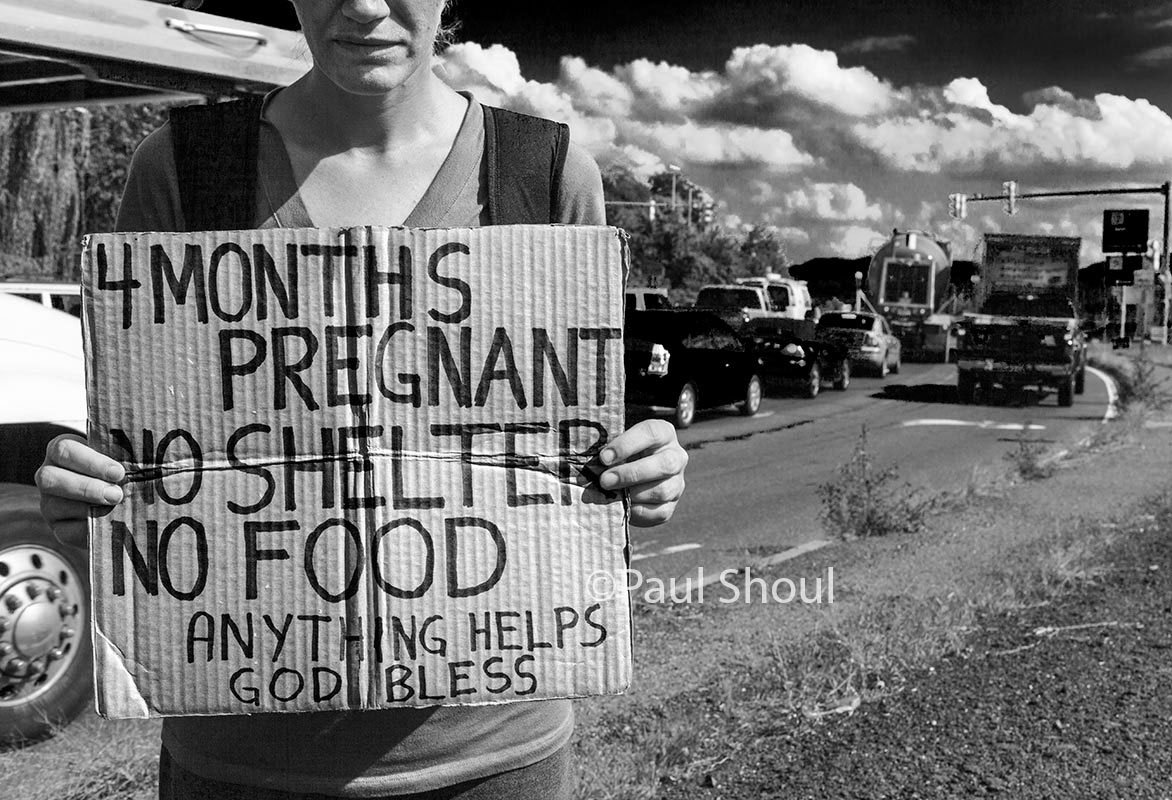 4 MONTHS
PREGNANT
NO SHELTER
NO FOOD
ANYTHING HELPS
GOD BLESS
©Paul Shoul